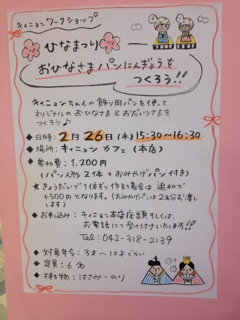 キィニョンワークショップ
ひなまつり
おひなさまパンにんぎょうを
つくろう!!
キィニョンちゃんの飾り用パンを使って
オリジナルのおひなさま&おだいりさまを
つくろう♪
◆日時: 2月26日(木)15:30〜16:30
◆場所: キィニョン カフェ(本店)
◆参加費: 1.200円
(パン人形2体+おみやげパン付き)
★きょうだいで1体ずつ作る場合は 追加で
+500円となります。(おみやげパンは2名分お渡し
します)
◆お申し込み: キィニョン本店店頭もしくは、
お電話にて受け付けいたします!!
Tel: 042-318-2139
◆対象年令: 3才〜
◆定員: 6名
◆持ち物: はさみ・のり